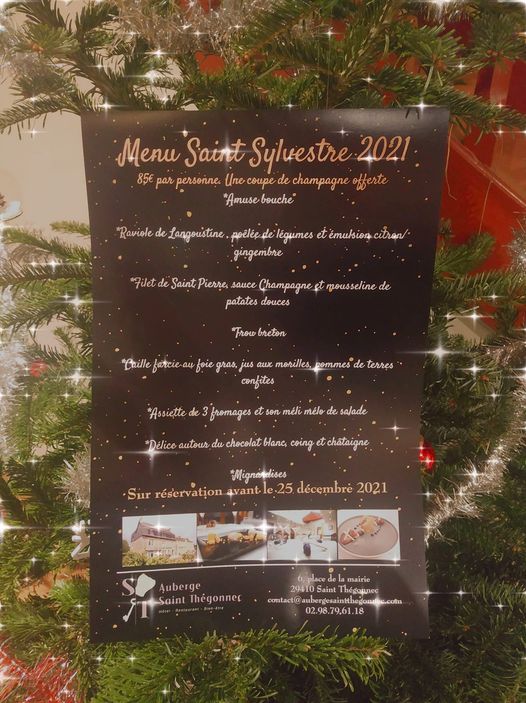 Menu Saint Sylvestre 2021
85€ par personne. Une coupe de champagne offerte
*Amuse bouche*
*Raviole de Langoustine, poêlée de légumes et émulsion citron/
gingembre
*Filet de Saint Pierre, sauce Champagne et mousseline de
patates douces
*Trou breton
*Caille farcie au foie gras, jus aux morilles, pommes de terres
confites
*Assiette de 3 fromages et son méli mélo de salade
*Délice autour du chocolat blanc, coing et châtaigne
*Mignardises
Sur réservation avant le 25 décembre 2021
Auberge
Saint Thégonnec
Hôtel - Restaurant - Bien-être
6, place de la mairie
29410 Saint Thégonnec
contact@aubergesaintthegonnec.com
02.98.79.61.18